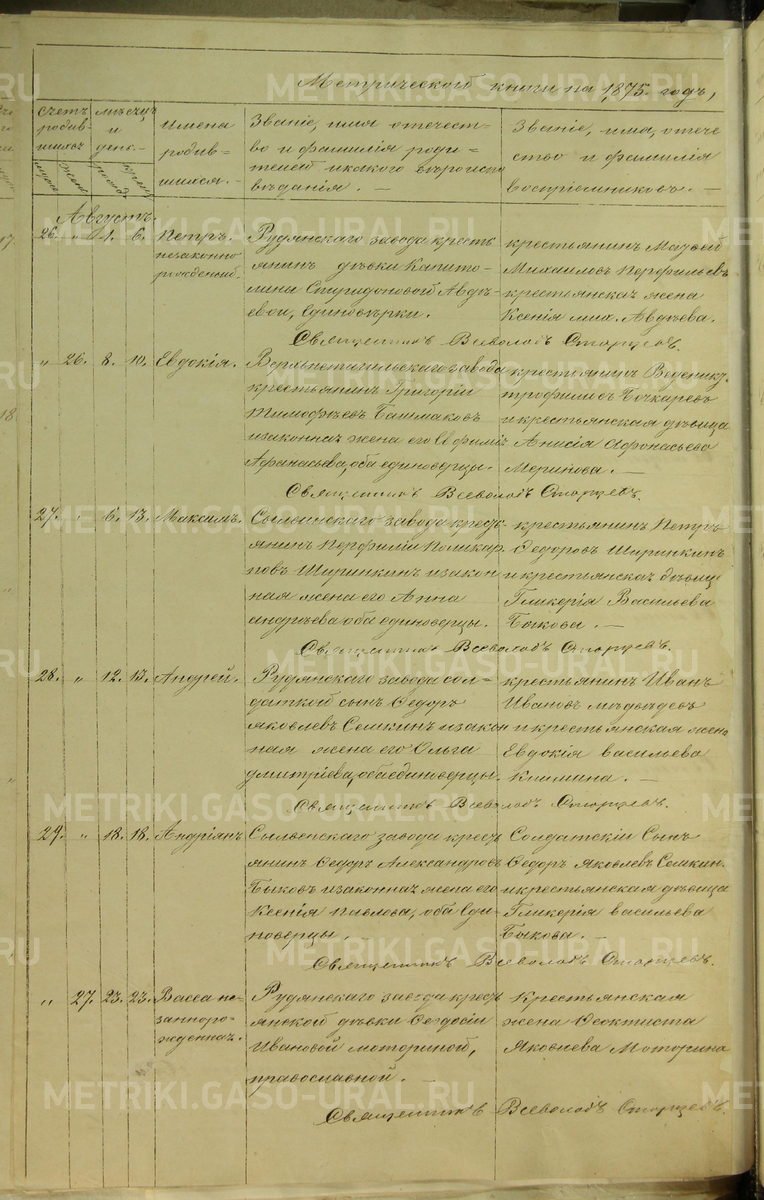 Метрической книги на 1875 годъ,
Счетъ родив-шихся
мужес. женс.
Мѣсяцъ и день.
рожд. крещ.
Имена родив-шихся. —
Званіе, имя отечест-
во и фамилія роди-
телей и какого вѣроиспо
вѣданія. —
Званіе, имя, отече
ство и фамилія
воспріемниковъ. —
Августъ.
26. " 4. 6. Петръ.
незаконно
рожденный.
Рудянскаго завода кресть
янинъ дѣвки Капито-
лины Спиридоновой Авдѣ-
евой, Единовѣрки.
крестьянинъ Матвей
Михаиловъ Перфильевъ
крестьянская жена
Ксенія мих. Авдѣева.
Священникъ Всеволодъ Старцевъ.
" 26. 8. 10. Евдокія.
Верхнетагильского завода
крестьянинъ Григорій
Тимофѣевъ Башмаковъ
и законная жена его
Афанасьева, оба единоверцы.
крестьянинъ
трофимовъ Бочкаревъ
и крестьянская дѣвица
Анисія Афонасьева
Меринова. —
Священникъ Всеволодъ Старцевъ.
27. " 6. 13. Максимъ.
Сылвинскаго завода крест
янинъ Перфилій
Ширинкинъ и закон
ная жена его Анна
андрѣева оба единоверцы.
крестьянинъ Петръ
Федоровъ Ширинкинъ
и крестьянская дѣвиц
Гликерія Васильева
Быкова. —
Священникъ Всеволодъ Старцевъ.
28. " 12. 13. Андрей.
Рудянскаго завода сол-
датской сынъ Ѳедоръ
яковлевъ Семкинъ и закон
ная жена его Ольга
дмитріева, оба единоверцы.
крестьянинъ Иванъ
Ивановъ
и крестьянская жена
Евдокія васильева
Климина. —
Священникъ Всеволодъ Старцевъ.
29. " 18. 18. Андріянъ.
Сылвенскаго завода крест
янинъ Ѳедоръ Александровъ
Быковъ и законная жена его
Ксенія Павлова, оба Еди-
новерцы.
Солдатскій Сынъ
Ѳедоръ Яковлевъ Семкин.
и крестьянская дѣвица
Гликерія васильева
Быкова. —
Священникъ Всеволодъ Старцевъ.
" 27. 23. 23. Васса не-
заннoро-
жденная.
Рудянскаго завода крест
янской дѣвки Ѳеодосіи
Ивановой моториной,
православной. —
Крестьянская
жена Ѳеоктиста
Яковлева Моторина
Священникъ Всеволодъ Старцевъ.
METRIKI.GASO-URAL.RU